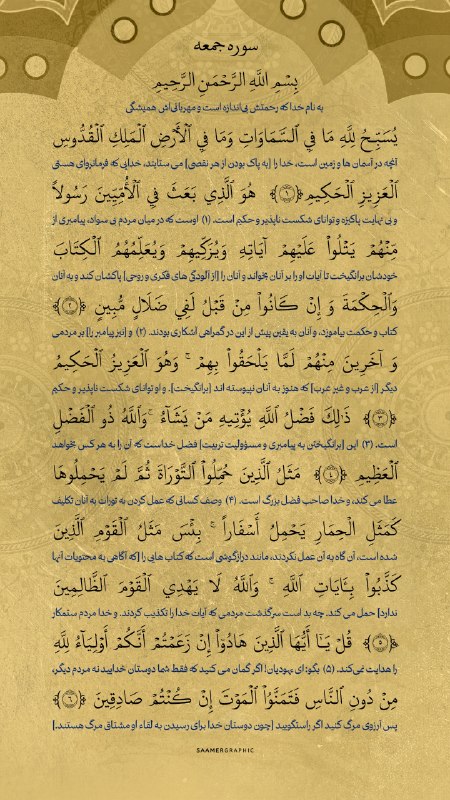 سوره جمعه
بِسْمِ اللَّهِ الرَّحْمَنِ الرَّحِيمِ
به نام خدا که رحمتش بی‌اندازه است و مهربانی‌اش همیشگی
يُسَبِّحُ لِلَّهِ مَا فِي السَّمَاوَاتِ وَمَا فِي الْأَرْضِ الْمَلِكِ الْقُدُّوسِ
آنچه در آسمان ها و زمین است، خدا را [به پاک بودن از هر نقصی] می ستایند، خدایی که فرمانروای هستی
الْعَزِيزِ الْحَكِيمِ ﴿١﴾ هُوَ الَّذِي بَعَثَ فِي الْأُمِّيِّينَ رَسُولًا
و بی نهایت پاکیزه و توانای شکست ناپذیر و حکیم است. (۱) اوست که در میان مردم بی سواد، پیامبری از
مِّنْهُمْ يَتْلُوا عَلَيْهِمْ آيَاتِهِ وَيُزَكِّيهِمْ وَيُعَلِّمُهُمُ الْكِتَابَ
خودشان برانگیخت تا آیات او را بر آنان بخواند و آنان را [از آلودگی های فکری و روحی] پاکشان کند و به آنان
وَالْحِكْمَةَ وَ إِنْ كَانُوا مِنْ قَبْلُ لَفِي ضَلَالٍ مُّبِينٍ ﴿٢﴾
کتاب و حکمت بیاموزد، و آنان به یقین پیش از این در گمراهی آشکاری بودند. (۲) و [نیز پیامبر را] بر مردمی
وَ آخَرِينَ مِنْهُمْ لَمَّا يَلْحَقُوا بِهِمْ ۚ وَهُوَ الْعَزِيزُ الْحَكِيمُ
دیگر [از عرب و غیر عرب] که هنوز به آنان نپیوسته اند [برانگیخت]. و او توانای شکست ناپذیر و حکیم
﴿٣﴾ ذَلِكَ فَضْلُ اللَّهِ يُؤْتِيهِ مَنْ يَشَاءُ ۚ وَاللَّهُ ذُو الْفَضْلِ
است. (۳) این [برانگیختن به پیامبری و مسؤولیت تربیت] فضل خداست که آن را به هر کس بخواهد
الْعَظِيمِ ﴿٤﴾ مَثَلُ الَّذِينَ حُمِّلُوا التَّوْرَاةَ ثُمَّ لَمْ يَحْمِلُوهَا
عطا می کند، و خدا صاحب فضل بزرگ است. (۴) وصف کسانی که عمل کردن به تورات به آنان تکلیف
كَمَثَلِ الْحِمَارِ يَحْمِلُ أَسْفَاراً ۚ بِئْسَ مَثَلُ الْقَوْمِ الَّذِينَ
شده است، آن گاه به آن عمل نکردند، مانند درازگوشی است که کتاب هایی را [که آگاهی به محتویات آنها
كَذَّبُوا بِئَايَاتِ اللَّهِ ۚ وَاللَّهُ لَا يَهْدِي الْقَوْمَ الظَّالِمِينَ
ندارد] حمل می کند. چه بد است سرگذشت مردمی که آیات خدا را تکذیب کردند. و خدا مردم ستمکار
﴿٥﴾ قُلْ يَا أَيُّهَا الَّذِينَ هَادُوا إِنْ زَعَمْتُمْ أَنَّكُمْ أَوْلِيَاءُ لِلَّهِ
را هدایت نمی‌کند. (۵) بگو: ای یهودیان! اگر گمان می کنید که فقط شما دوستان خدایید نه مردم دیگر،
مِنْ دُونِ النَّاسِ فَتَمَنَّوُا الْمَوْتَ إِنْ كُنْتُمْ صَادِقِينَ ﴿٦﴾
پس آرزوی مرگ کنید اگر راستگویید [چون دوستان خدا برای رسیدن به لقاء او مشتاق مرگ هستند.]
SAAMERGRAPHIC